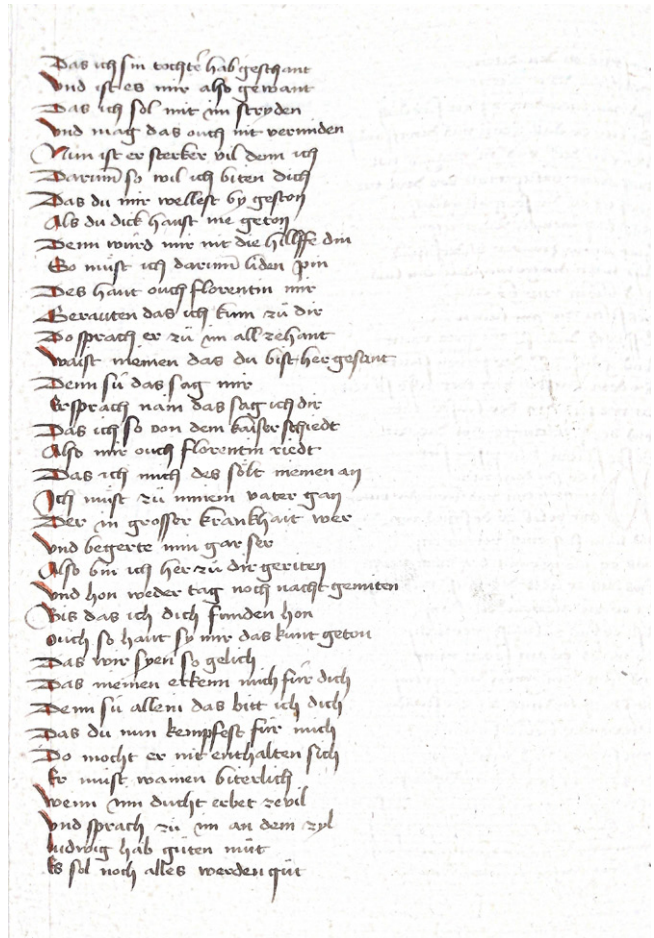 Das ich sin tochter hab geschant
Vnd ist es mir also gewant
Das ich sol mit im stryden
Vnd mag das ouch nit vermiden
Nun ist er sterker vil denn ich
Darum̄ so wil ich biten dich
Das du mir wellest by geston
Als du dick haust me geton
Denn würd mir nit die hillffe din
So müst ich darum̄ liden pin
Des haut ouch florentin mir
Gerauten das ich kum zů dir
Do sprach er zů im all zehant
Waist niemen das du bist her gesant
Denn sü das sag mir
Er sprach nain das sag ich dir
Das ich so von dem kaiser schiedt
Also mir ouch florentin riedt
Das ich mich des sölt niemen an
Ich müst zů minem vater gan
Der in grosser krankhait wer
Vnd begerte min gar ser
Also bin ich her zů dir geriten
Vnd hon weder tag noch nacht gemiten
Bis das ich dich funden hon
Ouch so haut sy mir das kunt geton
Das wir syen so gelich
Das niemen erkenn mich für dich
Denn sü allein das bitt ich dich
Das du nun kempfest für mich
Do mocht er nit enthalten sich
Er müst wainen biterlich
Wenn in ducht erbet zevil
Vnd sprach zů im an dem zyl
Ludwig hab gůten můt
Es sol noch alles werden gůt